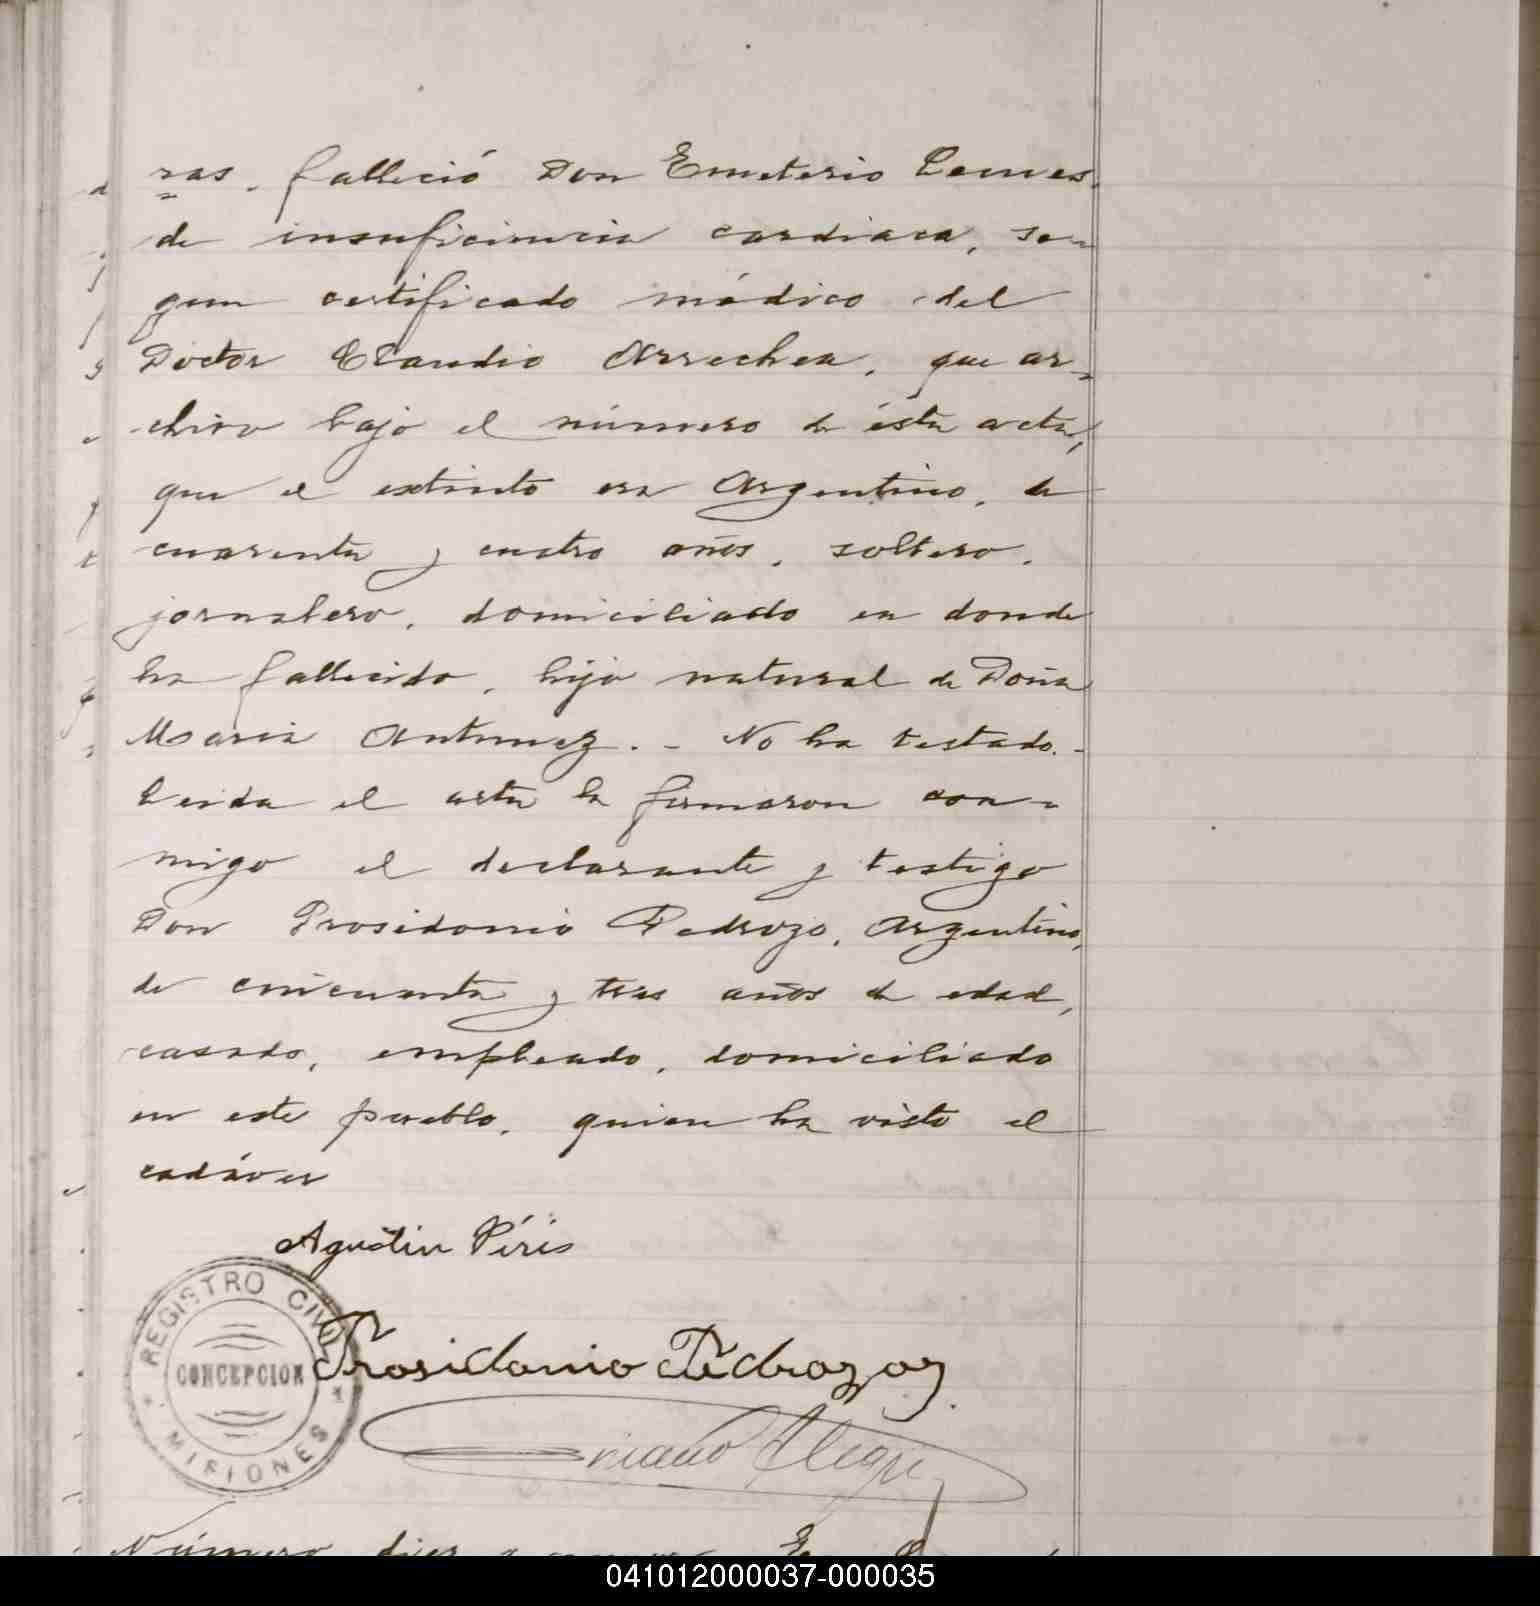 ras. falleció Don Emeterio Lemes
de insuficiencia cardiaca, se-
gun certificado médico del
Doctor Claudio Arrechea, que ar-
chivo bajo el número de ésta acta,
que el extinto era Argentino, de
cuarenta y cuatro años, soltero,
jornalero, domiciliado en donde
ha fallecido, hijo natural de Doña
Maria Antunez. - No ha testado. -
Leida el acta la firmaron con-
migo el declarante y testigo
Don Prosidonio Pedrozo, Argentino,
de cincuenta y tres años de edad,
casado, empleado, domiciliado
en este pueblo, quien ha visto el
cadáver
Agustin Píris
REGISTRO CIVIL
CONCEPCION
MISIONES
Prosidonio Pedrozo
Alegre
Número diez y
041012000037-000035